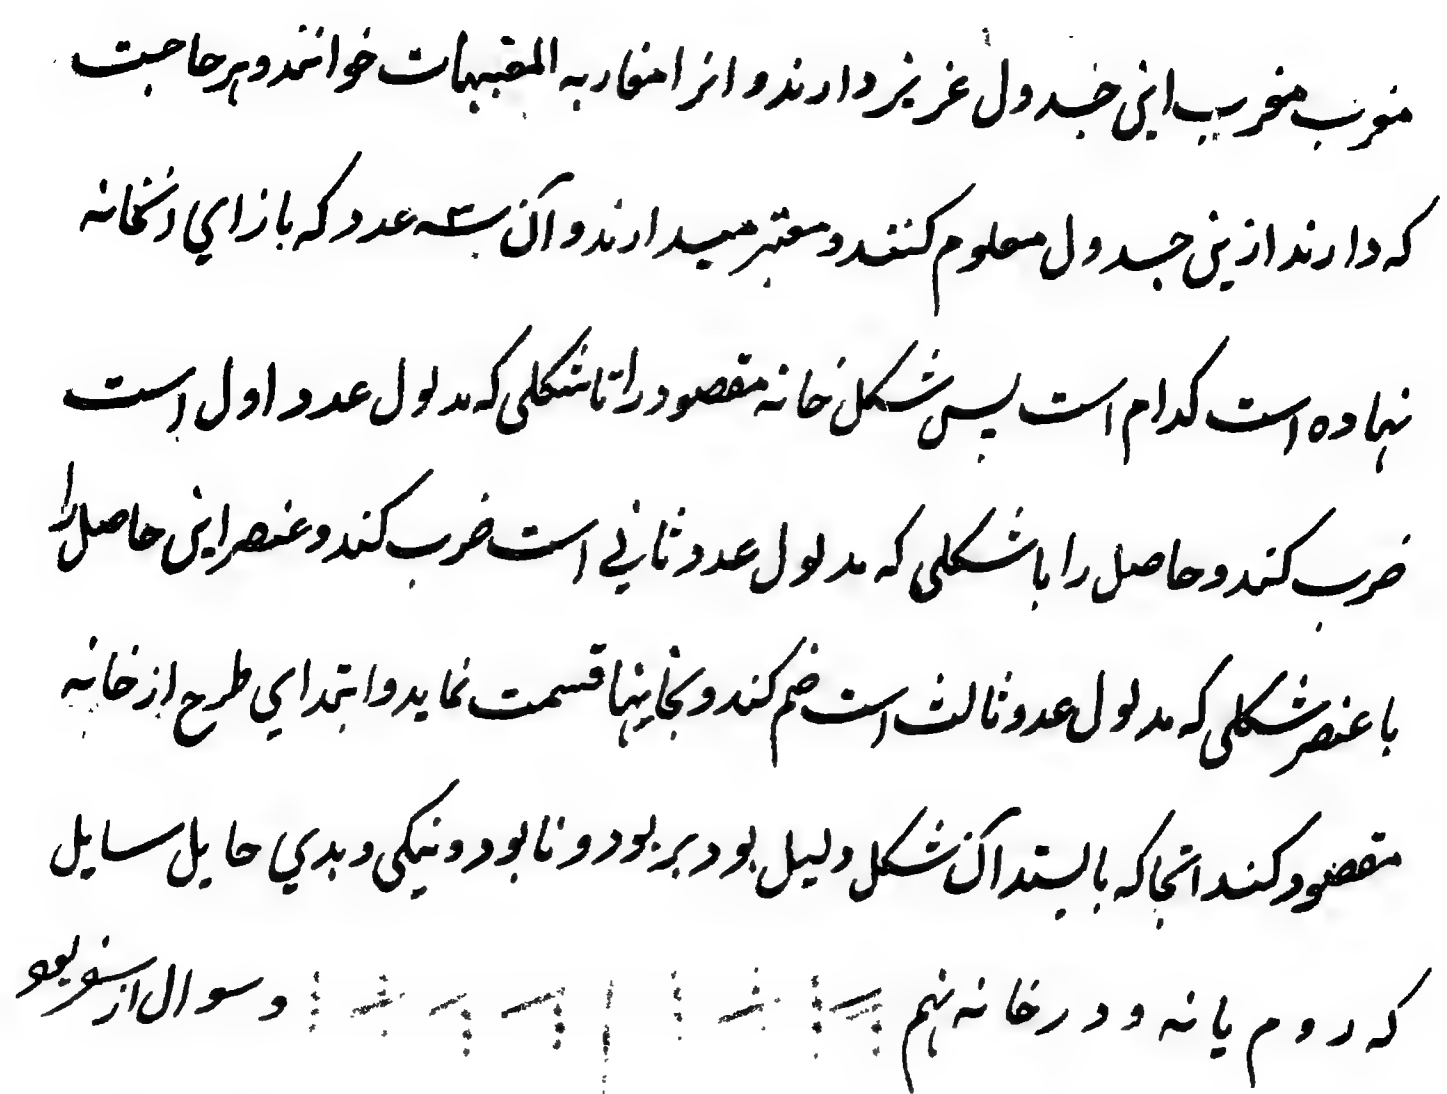 مغرب مغرب اینی جدول عزیز دارند و انرا مغاربه المقبهات خوانند و هر حاجت
که دارند ازینی جدول معلوم کنند و معتبر میدارند و آن به سه عدد که بازاي انخانه
نهاده است کدام است پس شکل خانه مقصود را تا شکلی که مدلول عدد اول است
ضرب کند و حاصل را با شکلی که مدلول عدد ثاني است ضرب کند و عنصر این حاصل را
با عنصر شکلی که مدلول عدد ثالث است ضم کند و بخاینها قسمت نماید و ابتداي طرح از خانه
مقصود کند انجا که بایستد آن شکل دلیل بود بر بود و نابود و نیکی و بدي حایل سایل
که روم یا نه و در خانه نهم و سوال از سفر بود